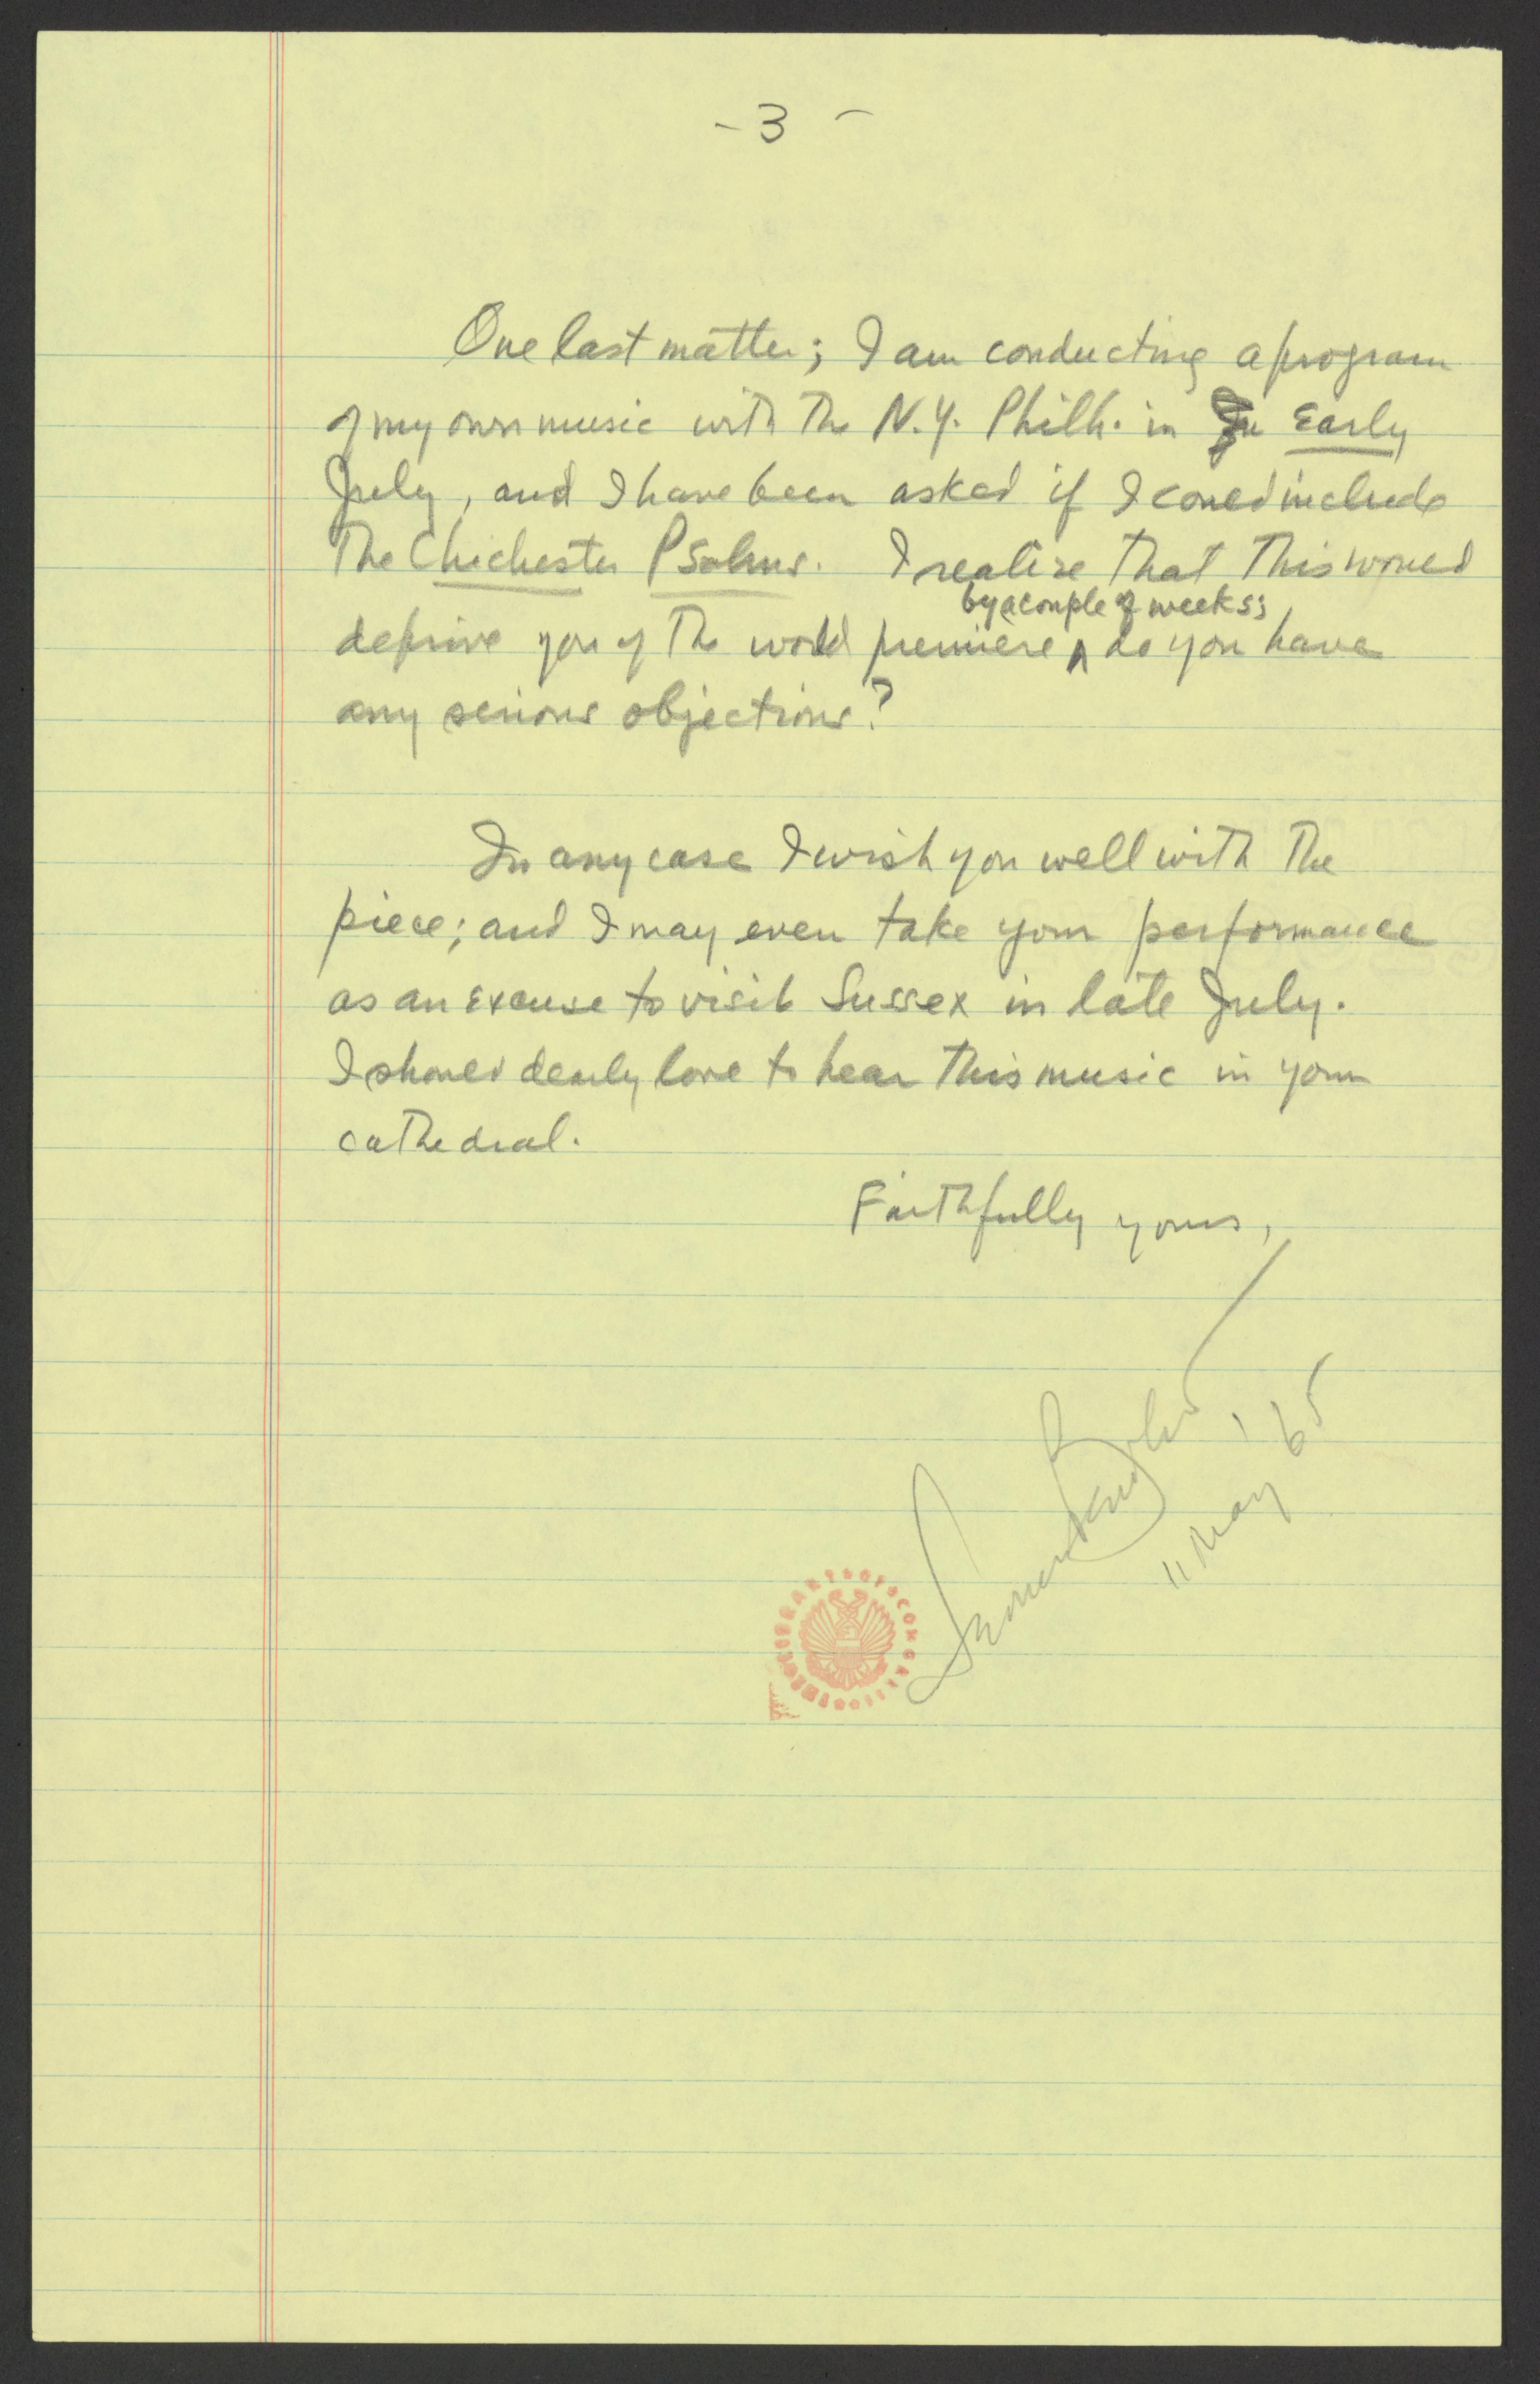 - 3 -
One last matter; I am conducting a program
of my own music with the N.Y. Philh. in Ju early
July, and I have been asked if I could include
the Chichester Psalms. I realize that this would
by a couple of weeks;
deprive you of the world premiere ^ do you have
any serious objections?
In any case I wish you well with the
piece; and I may even take your performance
as an excuse to visit Sussex in late July.
I should dearly love to hear this music in your
cathedral.
Faithfully yours,
11 May '65